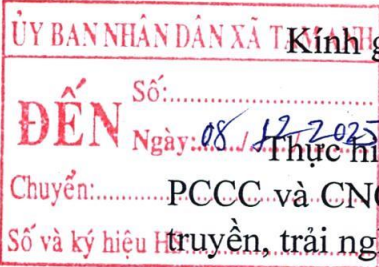 ỦY BAN NHÂN DÂN XÃ
Kính g
Số:
ĐẾN
Ngày: 08/12-2025
Thực hi
Chuyển:
PCCC và CNC
Số và ký hiệu
truyền, trải ng